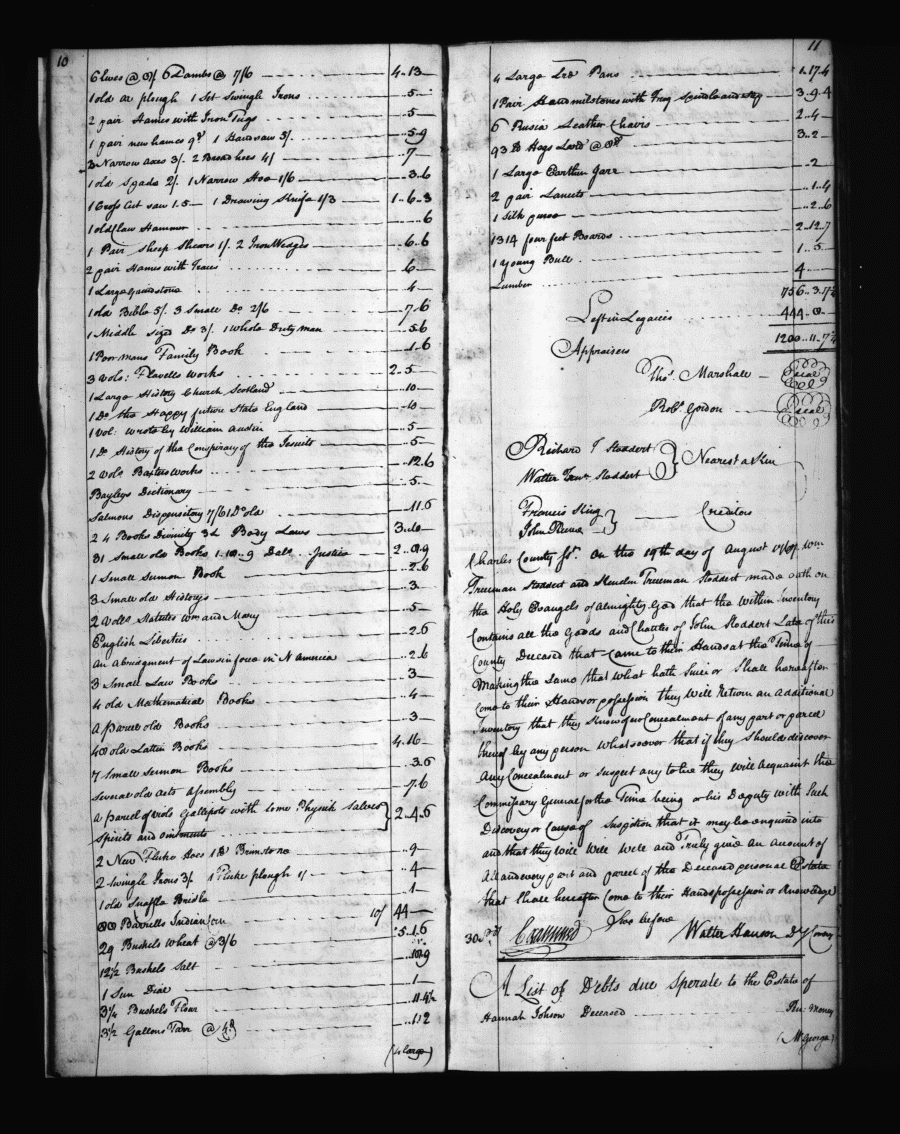 10
6 Ewes @ 8/ 6 Lambs @ 7/6 4..13
1 old Ax plough 1 Set Swingle Irons ..5
2 pair Hames with Iron Tugs ..5
1 pair new hames 9d 1 Handsaw 5/. ..5.9
3 Narrow axes 3/. 2 Broad hoes 4/ ..7
1 old Spade 2/. 1 Narrow Hoe 1/6 ..3.6
1 Cross Cut saw 1.5 1 Drawing Knife 1/3 1..6..3
1 old Claw Hammer ..6
1 Pair Sheep Shears 1/. 2 Iron Wedges ..6..6
2 pair Hames with Traces ..6
1 Large Grindstone ..4
1 old Bible 5/. 3 Small Do 2/6 ..7.6
1 Middle Sized Do 3/. 1 Whole Duty man ..5.6
1 Poor mans Family Book ..1.6
3 Vols: Flavells Works 2..5
1 Large History Church Scotland ..10
1 Do the Happy future State England ..10
1 Vol: wrote by William Austin ..5
1 Do History of the Conspiracy of the Jesuits ..5
2 Vols Baxters Works ..12.6
Bayleys Dictionary ..5
Salmons Dispensitory 7/6 1 Do old ..11.6
2 4 Books Divinity 3 £ Body Laws 3..6
31 Small old Books 1.10..9 Dalt. Justice 2..0.9
1 Small Sermon Book ..2.6
3 Small old Historys ..3
2 Vols Statutes Wm and Mary ..5
English Liberties ..2.6
An Abridgment of Laws in force in N America ..2.6
3 Small Law Books ..3
4 old Mathematical Books ..4
A parcel old Books ..3
48 old Lattin Books 4.16
7 Small Sermon Books ..3.6
Several old Acts Assembly ..7.6
A parcel of Viols Gallipots with some Physick Salves
Spirits and ointments 2.4.6
2 New Fluke Hoes 1 lb Brimstone ..9
2 Swingle Irons 3/. 1 Fluke plough 1/ ..4
1 old Snaffle Bridle ..1
88 Barrells Indian Corn 10/ 44
29 Bushels Wheat @ 3/6 5.1.6
12½ Bushels Salt
1 Sun Dial ..1
3¼ Bushels Flour ..11.4½
3½ Gallons Tarr @ 4d ..1.2
(4 Large)
11
4 Large Ird Pans 1.17.4
1 Pair Handmilstones with Frog Spindle and 3.9.4
6 Rusia Leather Chairs 2..4
93 lb Hogs Lard @ 8d 3..2
1 Large Earthen Jarr ..2
2 pair Lancets ..1.4
1 Silk purse ..2.6
1314 four feet Boards 2.12.7
1 young Bull 1..5
Lumber 4
756..3.7½
Left in Legacies 444..8
1200..11.7½
Appraisers
Thos. Marshall seal
Robt. Gordon seal
Richard T Stoddert
Walter Trun. Stoddert Nearest a Kin
Francis King
John Reeve Creditors
Charles County Ss. On the 19th day of August Wm
Treeman Stoddert and Treeman Stoddert made oath on
the Holy Evangels of Almighty God that the within Inventory
Contains all the Goods and Chattles of John Stoddert Late of this
County Deceased that Came to their Hands at the Time of
Making the Same that what hath Since or Shall hereafter
Come to their Hands or possession they will Return an Additional
Inventory that they Know of no Concealment of any part or parcel
thereof by any person Whatsoever that if they Should discover
Any Concealment or Suspect any to be they will Acquaint the
Commissary General for the Time being or his Deputy with Such
Discovery or Cause of Suspition that it may be enquired into
and that they will Will Well and Truly give an Account of
All and every part and parcel of the Deceased personal Estate
that Shall hereafter Come to their Hands possession or Knowledge
30 Examined before Walter Hanson Dy Comry
A List of Debts due Sperate to the Estate of
Hannah Johson Deceased Run: Money
(Mr George)